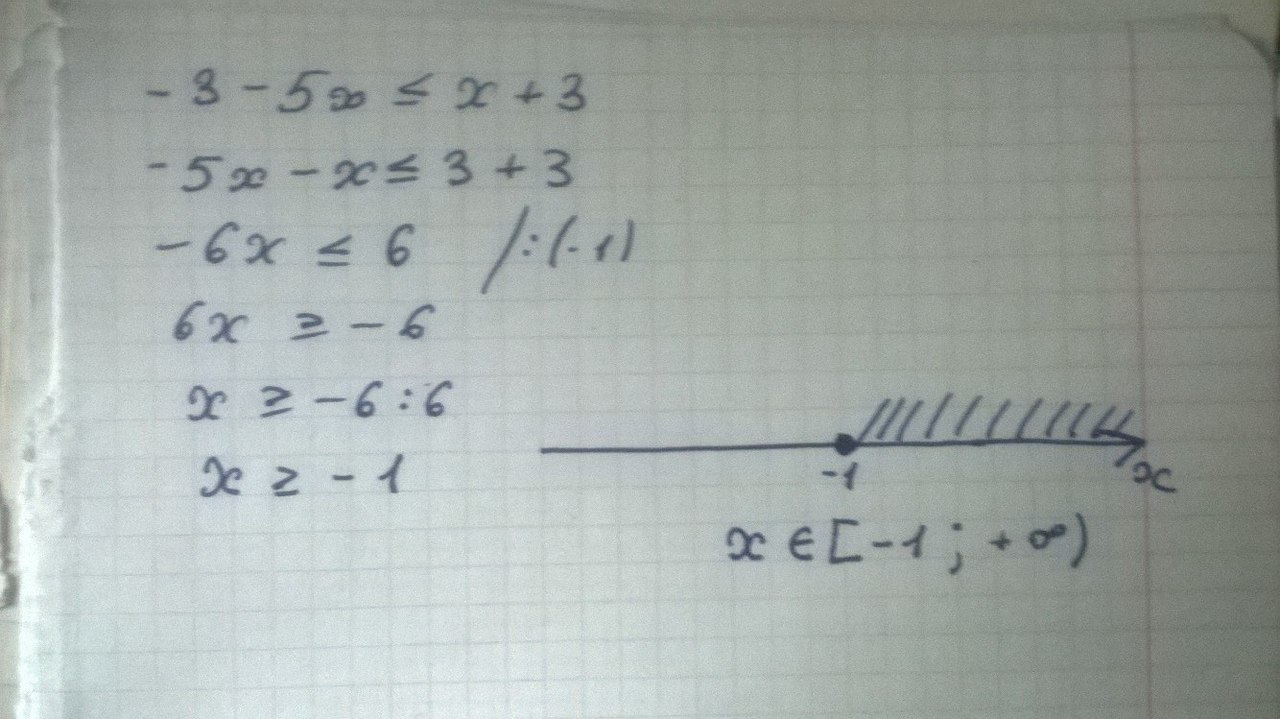 - 3 - 5x ≤ x + 3
- 5x - x ≤ 3 + 3
- 6x ≤ 6 /:(-1)
6x ≥ - 6
x ≥ - 6 : 6
x ≥ - 1
-1
x
x ∈ [-1 ; + ∞)